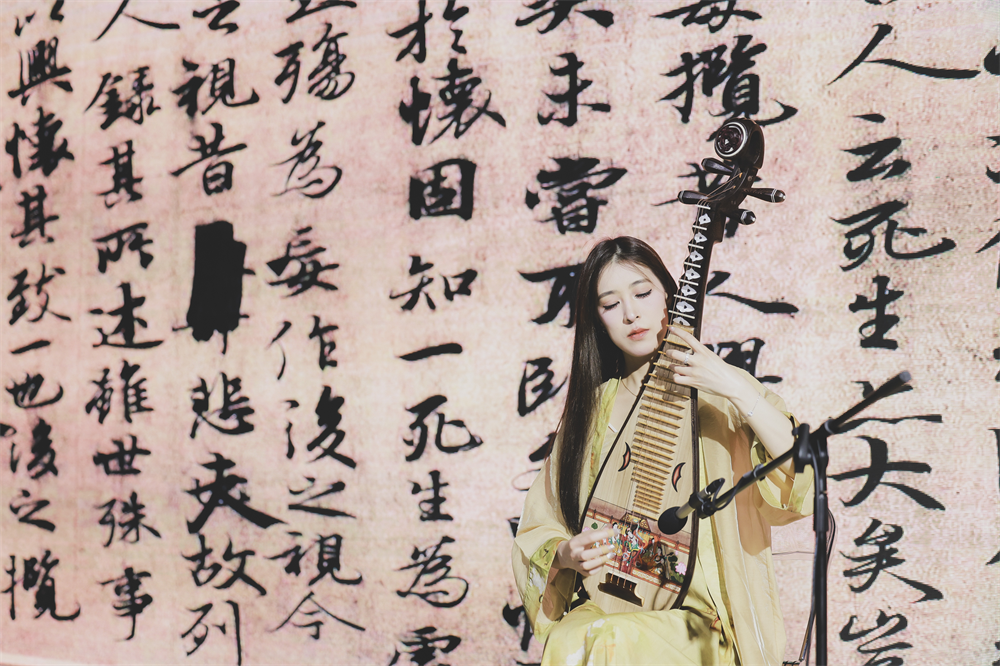 人云死生亦大矣豈
每攬昔人興
未嘗不臨
於懷固知一死生為虛
殤為妄作後之視今
視昔悲夫故列
人錄其所述雖世殊事
以興懷其致一也後之攬